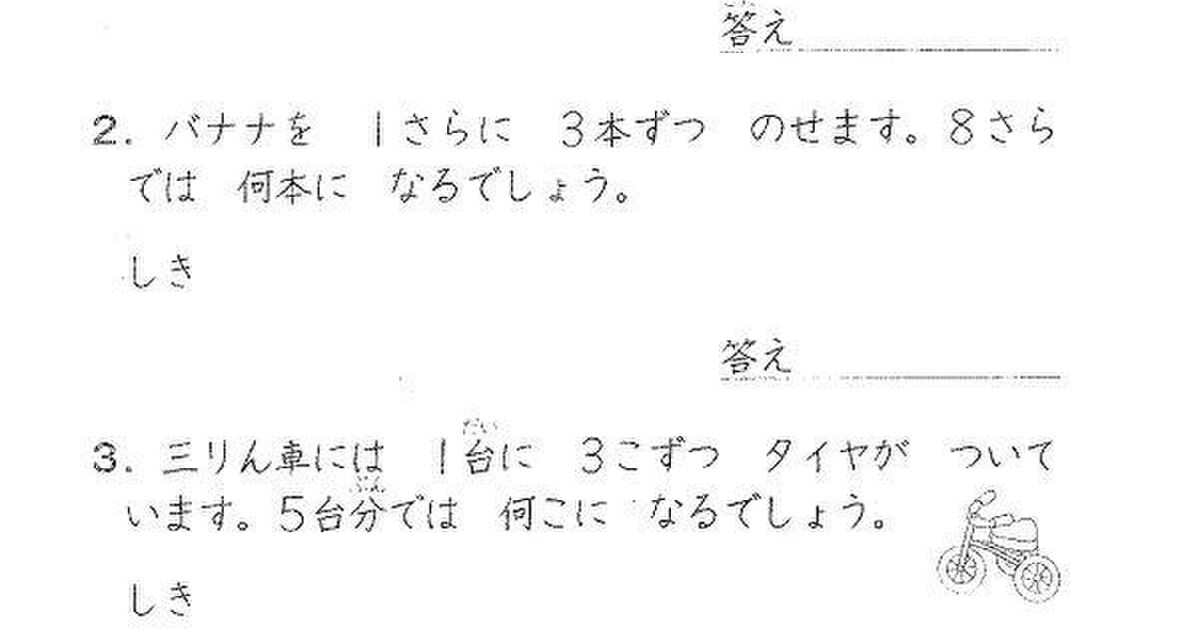 こた
答え
2. バナナを 1さらに 3本ずつ のせます。8さら
では 何本に なるでしょう。
しき
答え
だい
3. 三りん車には 1台に 3こずつ タイヤが ついて
ぶん
います。5台分では 何こに なるでしょう。
しき